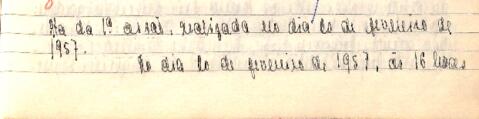 Ata da 1ª sessão, realizada no dia 20 de fevereiro de
1957.
No dia 20 de fevereiro de 1957, às 16 horas